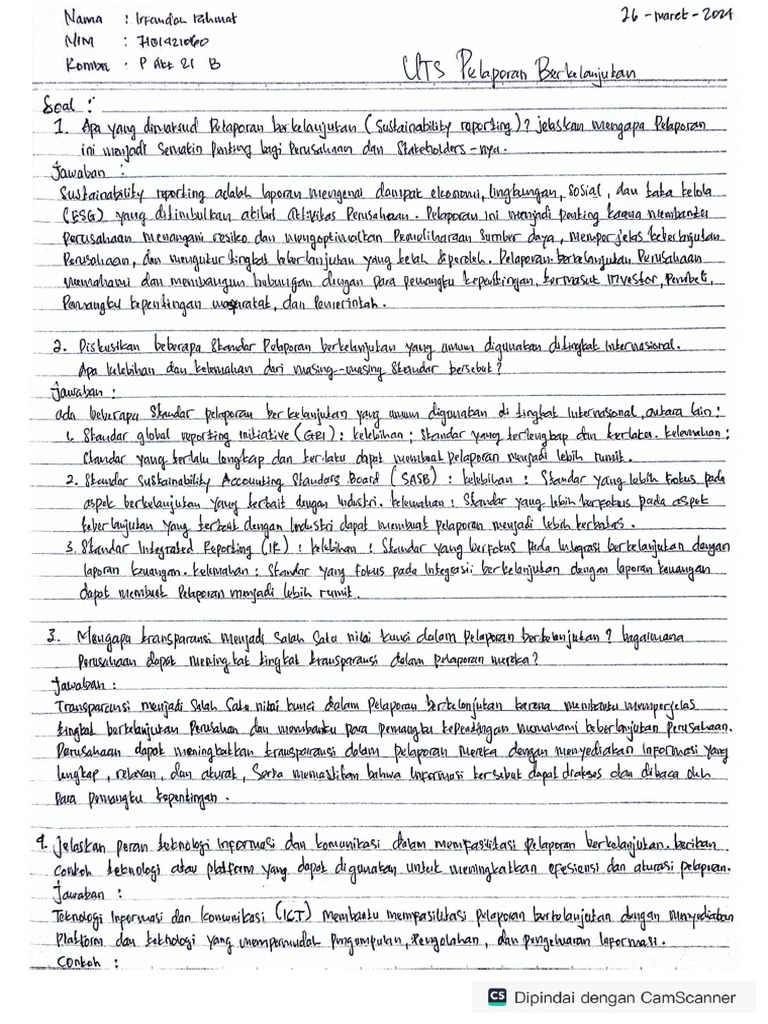 Nama : Irfandan rahmat
26 - maret - 2024
NIM : 7101421060
Rombel : P Akt 21 B
UTS Pelaporan Berkelanjutan
Soal :
1. Apa yang dimaksud Pelaporan berkelanjutan (Sustainability reporting)? jelaskan mengapa Pelaporan
ini menjadi Semakin Penting bagi Perusahaan dan Stakeholders-nya.
Jawaban :
Sustainability reporting adalah laporan mengenai dampak ekonomi, lingkungan, sosial, dan tata kelola
(ESG) yang ditimbulkan akibat aktivitas Perusahaan. Pelaporan ini menjadi penting karena membantu
perusahaan menangani resiko dan mengoptimalkan Pemeliharaan sumber daya, memperjelas keberlanjutan
Perusahaan, dan mengukur tingkat keberlanjutan yang telah diperoleh. Pelaporan berkelanjutan Perusahaan
memahami dan membangun hubungan dengan para pemangku kepentingan, termasuk investor, Pembeli,
Pemangku kepentingan masyarakat, dan Pemerintah.
2. Diskusikan beberapa Standar Pelaporan berkelanjutan yang umum digunakan ditingkat internasional.
Apa kelebihan dan kelemahan dari masing-masing Standar tersebut?
Jawaban :
ada beberapa Standar pelaporan berkelanjutan yang umum digunakan di tingkat Internasional, antara lain :
1. Standar global reporting initiative (GRI) : kelebihan : Standar yang terlengkap dan berlaku. kelemahan :
Standar yang terlalu lengkap dan berlaku dapat membuat pelaporan menjadi lebih rumit.
2. Standar Sustainability Accounting Standars Board (SASB) : kelebihan : Standar yang lebih fokus pada
aspek berkelanjutan yang terkait dengan industri. kelemahan : Standar yang lebih berfokus pada aspek
keberlanjutan yang terkait dengan Industri dapat membuat pelaporan menjadi lebih terbatas.
3. Standar Integrated Reporting (IR) : kelebihan : Standar yang berfokus pada Integrasi berkelanjutan dengan
laporan keuangan. kelemahan : Standar yang fokus pada Integrasii berkelanjutan dengan laporan keuangan
dapat membuat Pelaporan menjadi lebih rumit.
3. Mengapa transparansi menjadi Salah Satu nilai kunci dalam Pelaporan berkelanjutan? bagaimana
Perusahaan dapat meningkat tingkat transparansi dalam pelaporan mereka?
Jawaban :
Transparansi menjadi Salah Satu nilai kunci dalam Pelaporan berkelanjutan karena membantu memperjelas
tingkat berkelanjutan Perusahan dan membantu para pemangku kepentingan memahami keberlanjutan perusahaan.
Perusahaan dapat meningkatkan transparansi dalam pelaporan mereka dengan menyediakan informasi yang
lengkap, relavan, dan akurat, Serta memastikan bahwa Informasi tersebut dapat diakses dan dibaca oleh
Para pemangku kepentingan.
4. Jelaskan peran teknologi Informasi dan komunikasi dalam memfasilitasi pelaporan berkelanjutan. berikan
Contoh teknologi atau platform yang dapat digunakan untuk meningkatkan efesiensi dan akurasi pelaporan.
Jawaban :
Teknologi Informasi dan komunikasi (ICT) membantu mempasilitasi pelaporan berkelanjutan dengan menyediakan
Platform dan teknologi yang mempermudah Pengumpulan, Pengolahan, dan pengeluaran Informasi.
Contoh :
CS Dipindai dengan CamScanner